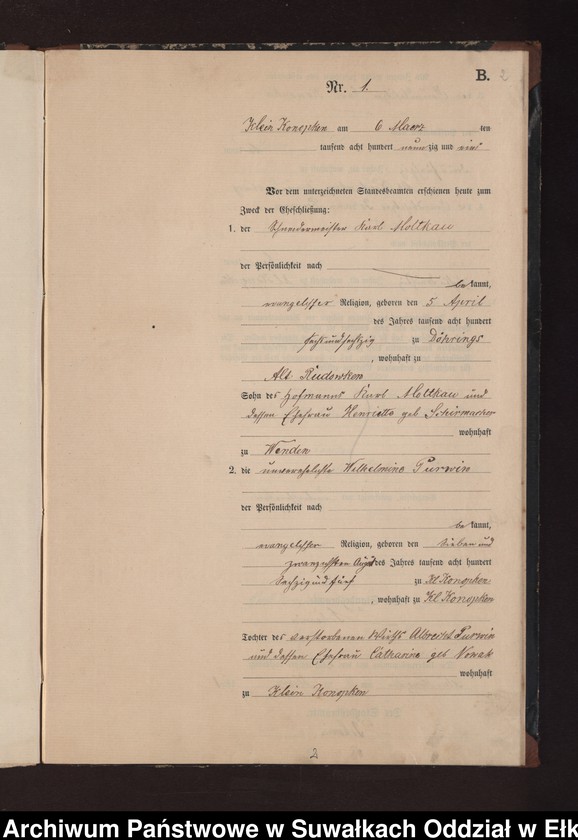 B.
Nr. 1.
Klein Konopken am 6 Maerz ten
tausend acht hundert neunzig und eins
Vor dem unterzeichneten Standesbeamten erschienen heute zum
Zweck der Eheschließung:
1. der Schneidermeister Karl Moltkau
der Persönlichkeit nach
bekannt,
evangelischer Religion, geboren den 5 April
des Jahres tausend acht hundert
sechsundsechzig zu Döhrings
, wohnhaft zu
Alt Rudowken
Sohn des Hofmanns Karl Moltkau und
dessen Ehefrau Henriette geb Schirmacher
wohnhaft
zu Wenden
2. die unverehelichte Wilhelmine Purwin
der Persönlichkeit nach
bekannt,
evangelischer Religion, geboren den Sieben und
zwanzigsten August des Jahres tausend acht hundert
Sechzig und fünf zu Kl. Konopken
, wohnhaft zu Kl Konopken
Tochter des verstorbenen Wirths Albrecht Purwin
und dessen Ehefrau Catharine geb Nowak
wohnhaft
zu Klein Konopken
2
Archiwum Państwowe w Suwałkach Oddział w Ełk